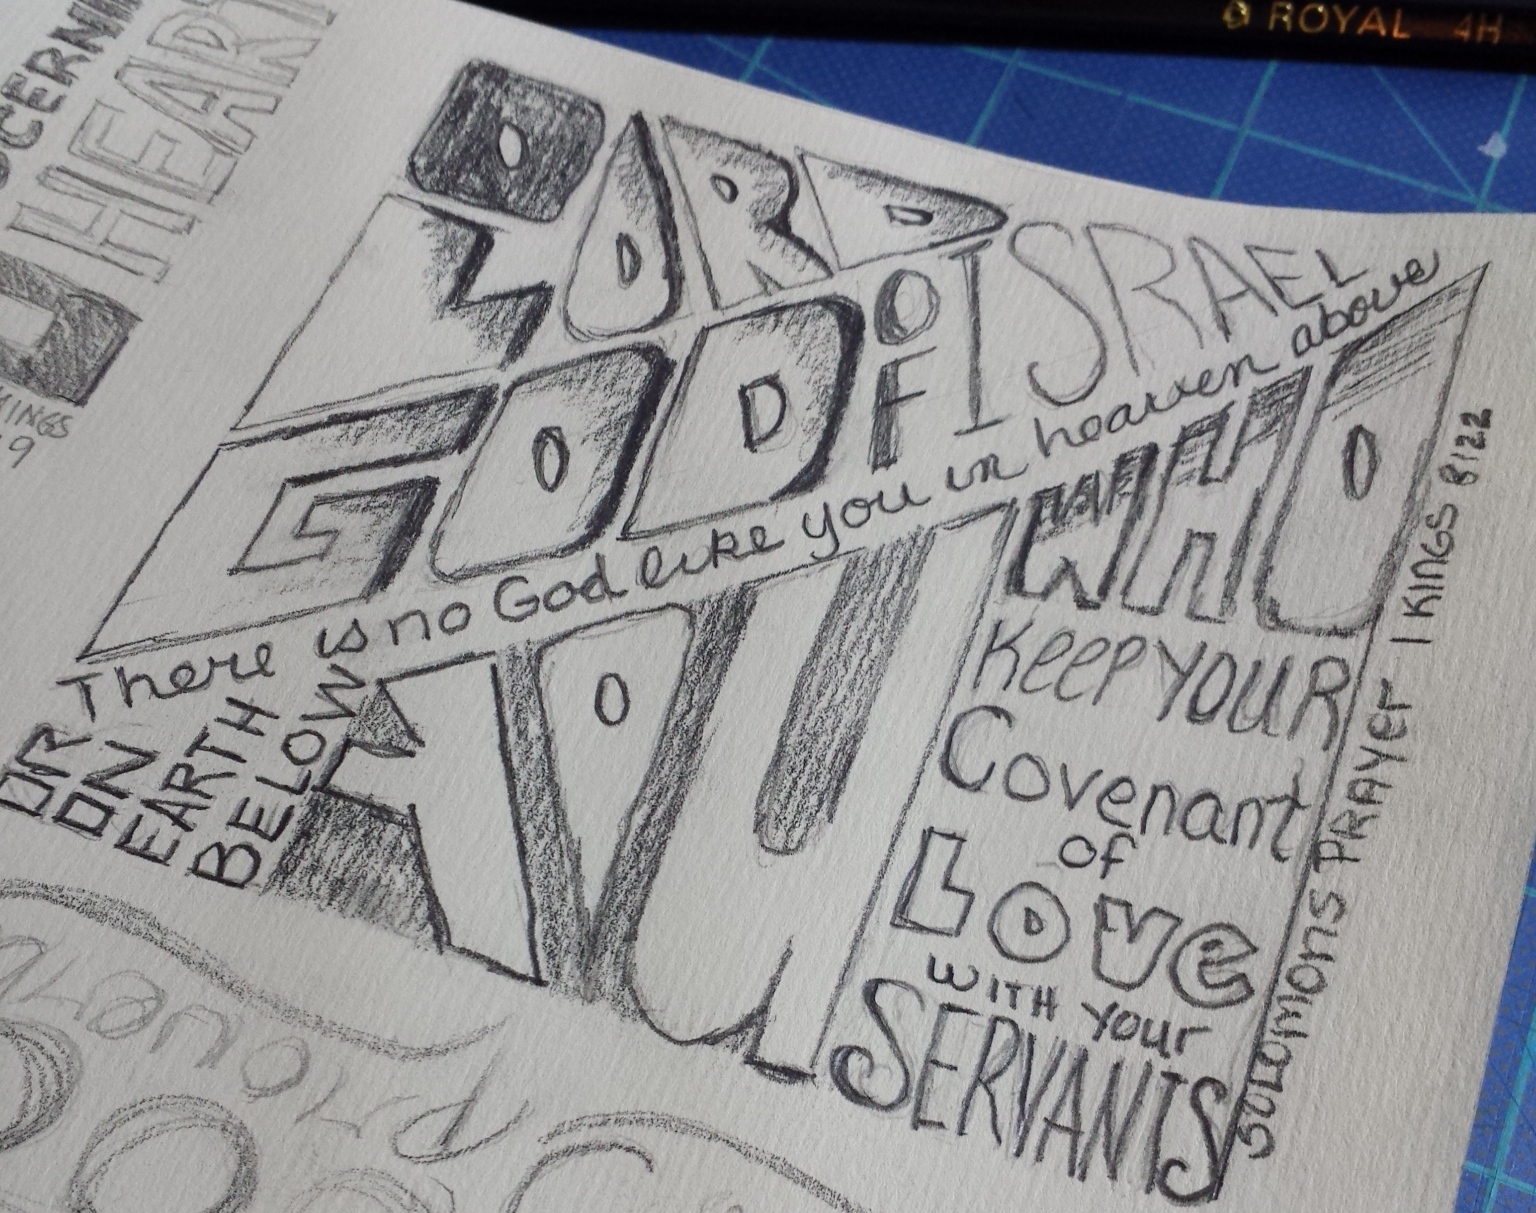 ROYAL 4H
HEART
KINGS
O
LORD
GOD
OF
ISRAEL
There is no God like you in heaven above
OR
ON
EARTH
BELOW
YOU
WHO
KeeP YOUR
Covenant
of
LOVe
WITH Your
SERVANTS
SOLOMONS PRAYer 1 KINGS 8:22